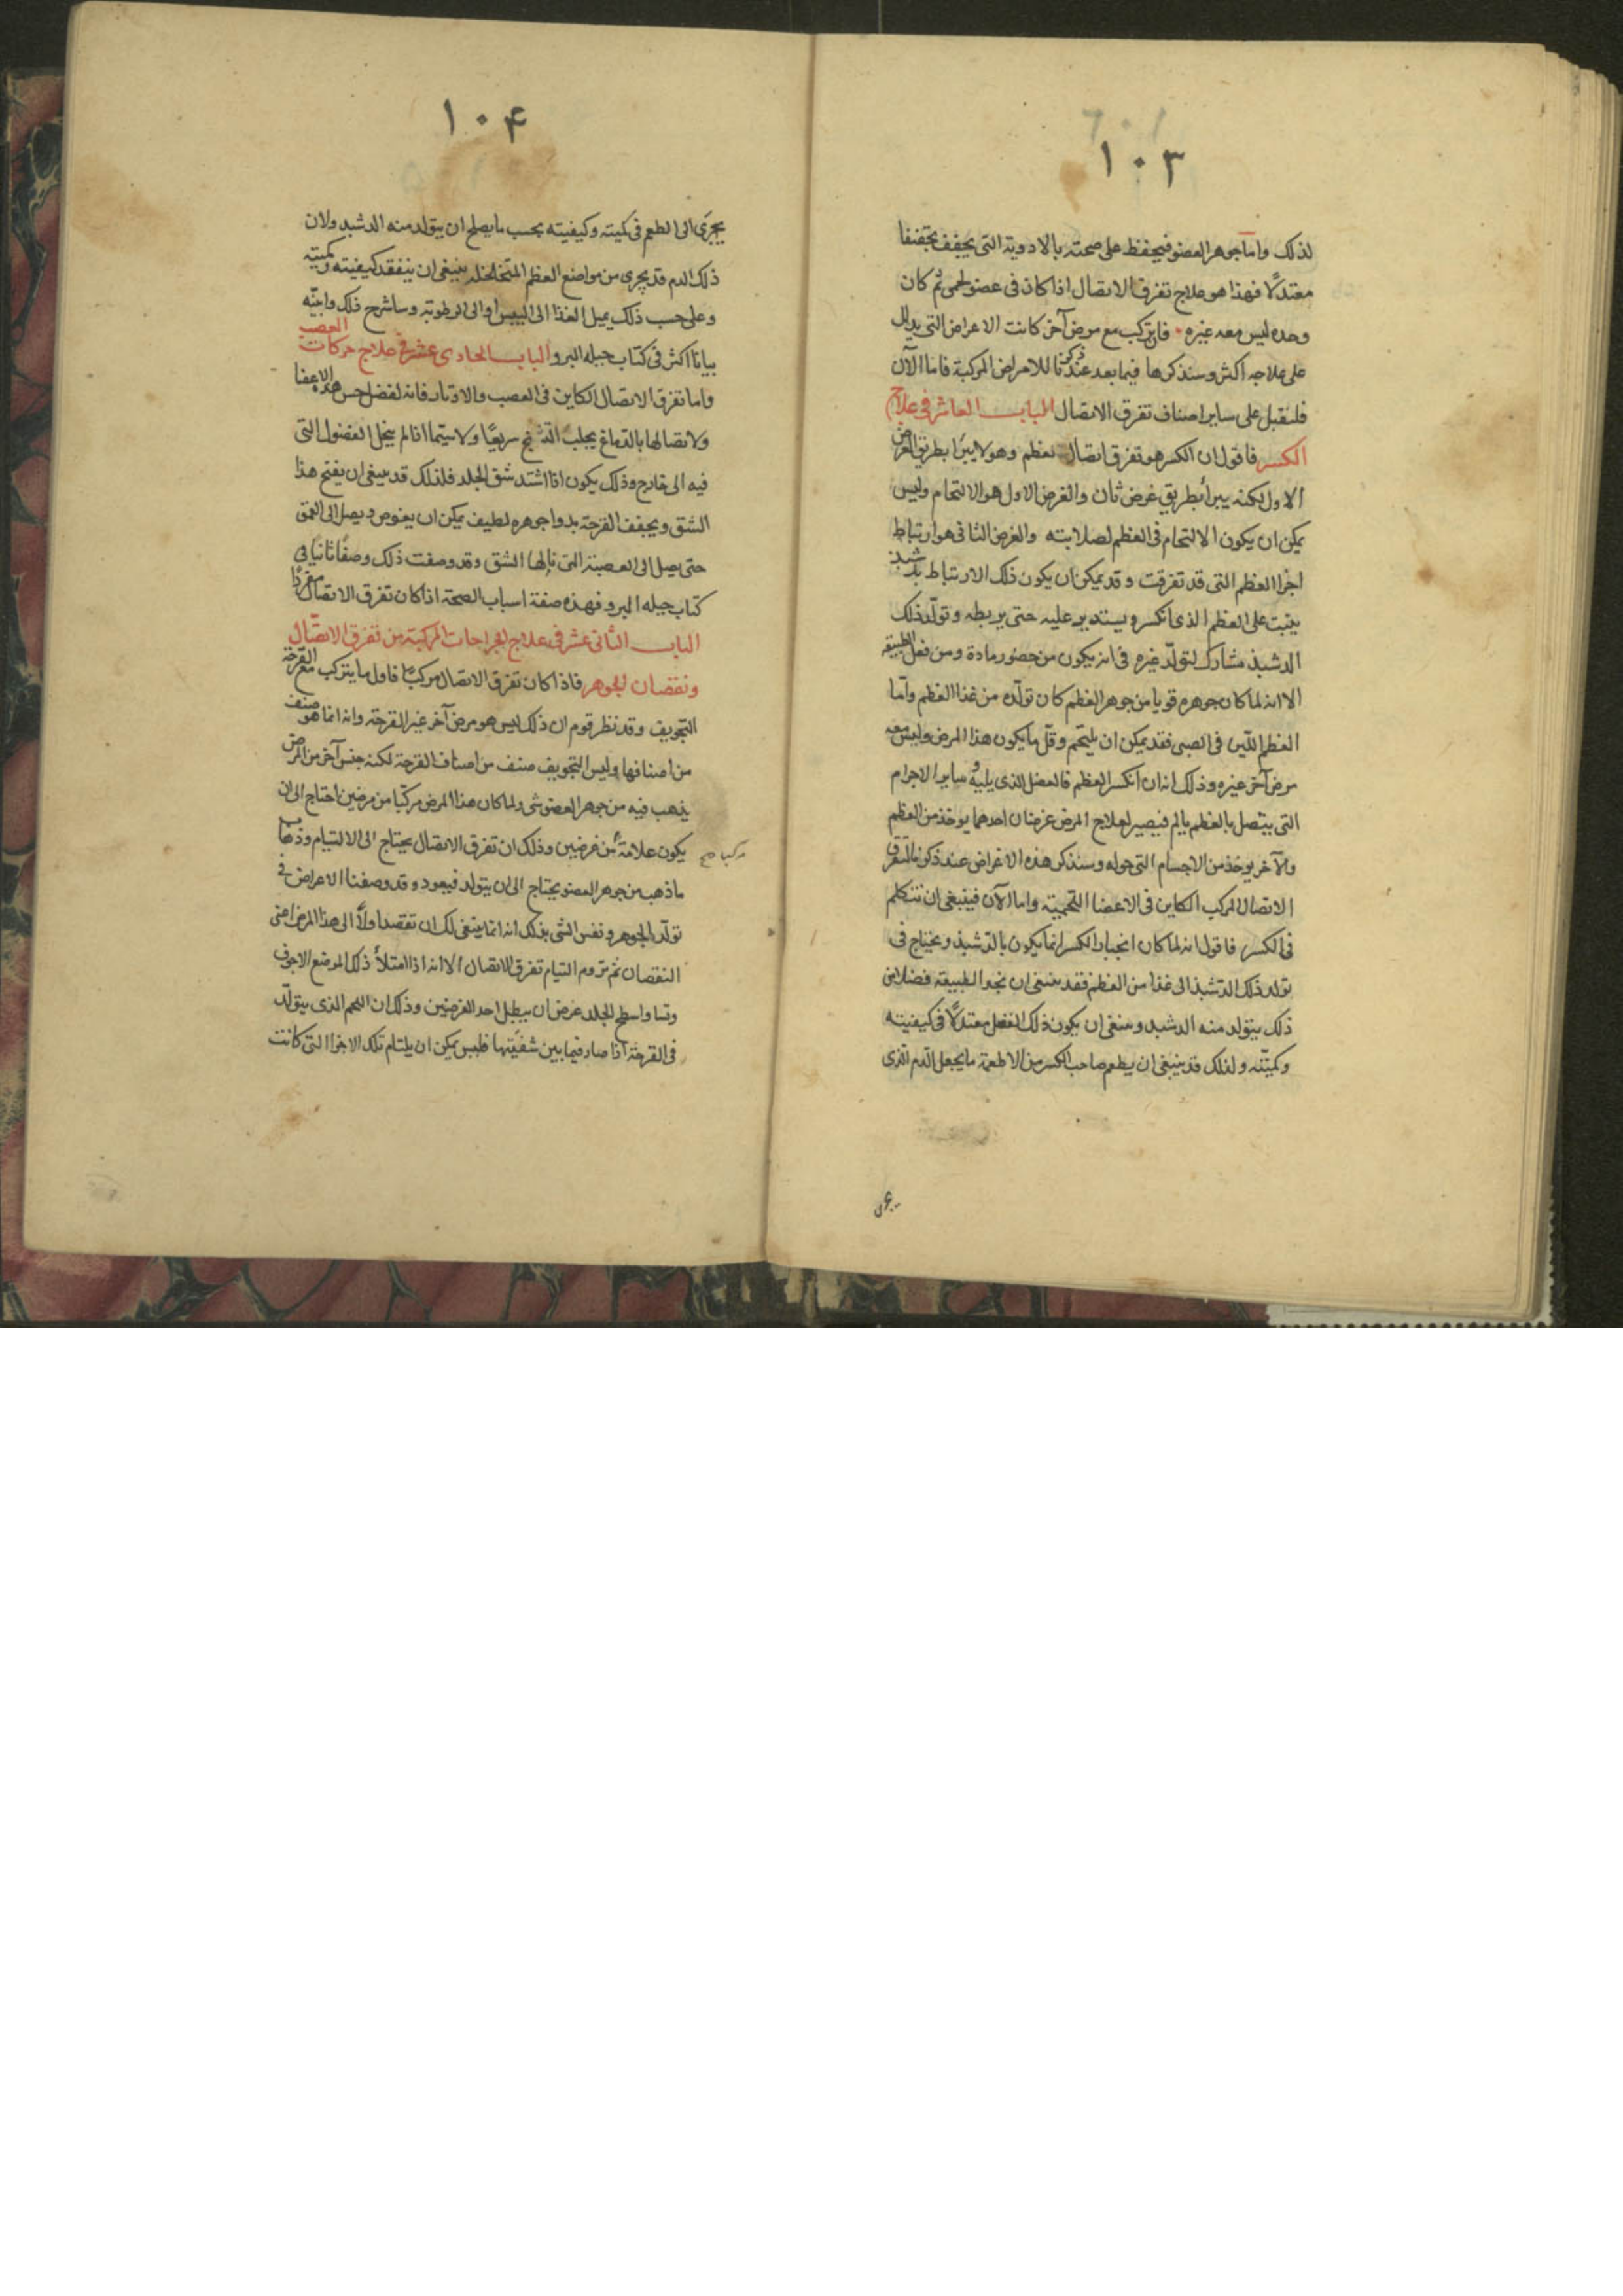 ١٠٣
لذلك واما جوهر العضو فيحفظ على صحته بالادوية التى تجفف تجفيفا
معتدلا فهذا هو علاج تفرق الاتصال اذا كان فى عضو لحمى ثم كان
وحده ليس معه غيره فان تركب مع مرض آخر كانت الاعراض التى يدل
على علاجه اكثر وسنذكرها فيما بعد عند ذكرنا للامراض المركبة فاما الآن
فلنقبل على ساير اصناف تفرق الاتصال الباب العاشر فى علاج
الكسر فاقول ان الكسر هو تفرق اتصال العظم وهو لا يبرا بطريق الغرض
الاول لكنه يبرأ بطريق غرض ثان والغرض الاول هو الالتحام وليس
يمكن ان يكون الالتحام فى العظم لصلابته والغرض الثانى هو ارتباط
اجزا العظم التى قد تفرقت وقد يمكن ان يكون ذلك الارتباط بدشبذ
ينبت على العظم الذى انكسر ويستدير عليه حتى يربطه وتولد ذلك
الدشبذ مشارك لتولد غيره فى انه يكون من حضور مادة ومن فعل الطبيعة
الا انه لما كان جوهره قويا من جوهر العظم كان تولده من غذا العظم واما
العظم اللين فى الصبى فقد يمكن ان يلتحم وقل ما يكون هذا المرض وليس معه
مرض آخر غيره وذلك انه ان انكسر العظم فالعضل الذى يليه و ساير الاجرام
التى يتصل بالعظم يالم فيصير لعلاج المرض غرضان احدهما يوخذ من العظم
والآخر يوخذ من الاجسام التى حوله وسنذكر هذه الاغراض عند ذكرنا لتفرق
الاتصال المركب الكاين فى الاعضا اللحمية واما الآن فينبغى ان نتكلم
فى الكسر فاقول انه لما كان انجبار الكسر انما يكون بالدشبذ ويحتاج فى
تولد ذلك الدشبذ الى غذا من العظم فقد ينبغى ان تجد الطبيعة فضلا من
ذلك يتولد منه الدشبد وينبغى ان يكون ذلك الفضل معتدلا فى كيفيته
وكميته ولذلك قد ينبغى ان يطعم صاحب الكسر من الاطعمة ما يجعل الدم الذى
١٠۴
يجرى الى الطعم فى كميته وكيفيته بحسب ما يصلح ان يتولد منه الدشبد ولان
ذلك الدم قد يجرى من مواضع العظم المتخلخله ينبغى ان يتفقد كيفيته وكميته
وعلى حسب ذلك يميل الغذا الى اليبس او الى الرطوبة وساشرح ذلك وابينه
بيانا اكثر فى كتاب حيله البرو الباب الحادى عشر فى علاج حركات العصب
واما تفرق الاتصال الكاين فى العصب والاوتار فانه لفضل حس هذه الاعضا
ولاتصالها بالدماغ يجلب التشنج سريعا ولا سيما اذا لم يتحل الفضول التى
فيه الى خارج وذلك يكون اذا اشتد شق الجلد فلذلك قد ينبغى ان يفتح هذا
الشق ويجفف القرحة بدوا جوهره لطيف يمكن ان يغوص ويصل الى العمق
حتى يصل الى العصبة التى نالها الشق وقد وصفت ذلك وصفا ثانيا فى
كتاب حيله البرو فهذه صفة اسباب الصحة اذا كان تفرق الاتصال مفردا
الباب الثانى عشر فى علاج الجراحات المركبة من تفرق الاتصال
ونقصان الجوهر فاذا كان تفرق الاتصال مركبا فاول ما يتركب مع القرحة
التجويف وقد نظر قوم ان ذلك ليس هو مرض آخر غير القرحة وانه انما هو صنف
من اصنافها وليس التجويف صنف من اصناف القرحة لكنه جنس آخر من المرض
يذهب فيه من جوهر العضو شى ولما كان هذا المرض مركبا من مرضين احتاج الى ان
يكون علامة من غرضين وذلك ان تفرق الاتصال يحتاج الى الالتيام وذهاب
مركبا صح
ما ذهب من جوهر العضو يحتاج الى ان يتولد فيعود وقد وصفنا الاعراض فى
تولد الجوهر ونفس الشى بذلك انه انما ينبغى لك ان تقصد اولا الى هذا المرض اعنى
النقصان ثم تروم التيام تفرق الاتصال الا انه اذا امتلأ ذلك الموضع الاجوف
وتساوا سطح الجلد عرض ان يبطل احد الغرضين وذلك ان اللحم الذى يتولد
فى القرحة اذا صار فيما بين شفتيها فليس يمكن ان يلتام تلك الاجزا التى كانت